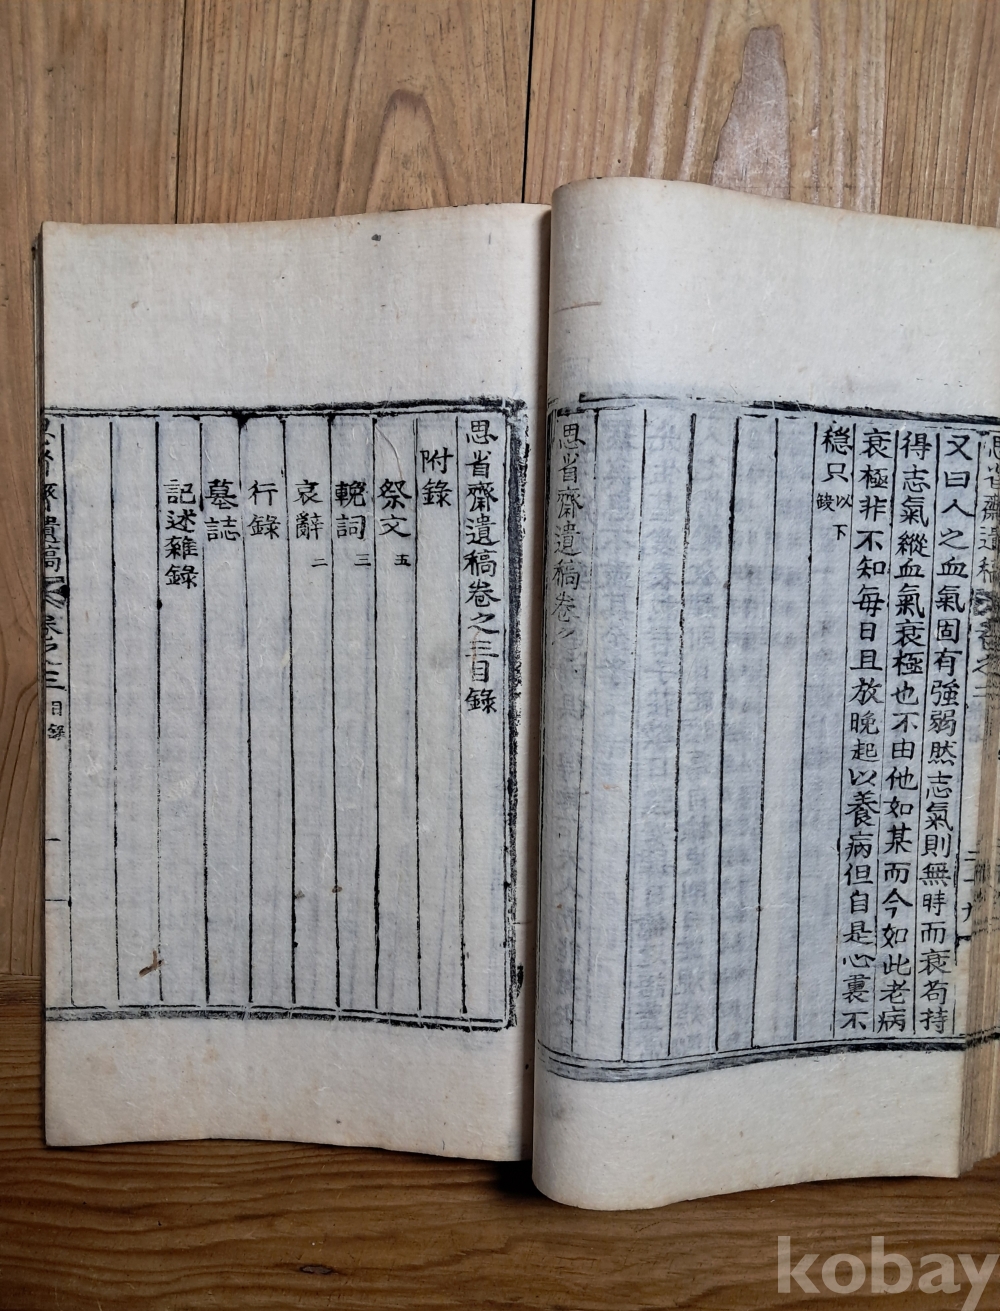 思省齋遺稿卷之二
二十九
又曰人之血氣固有強弱然志氣則無時而衰苟持
得志氣縱血氣衰極也不由他如某而今如此老病
衰極非不知每日且放晩起以養病但自是心裏不
穏只以下缺
思省齋遺稿卷之
思省齋遺稿卷之三目錄
附錄
祭文五
輓詞三
哀辭二
行錄
墓誌
記述雜錄
思省齋遺稿 卷之三 目錄 一
kobay